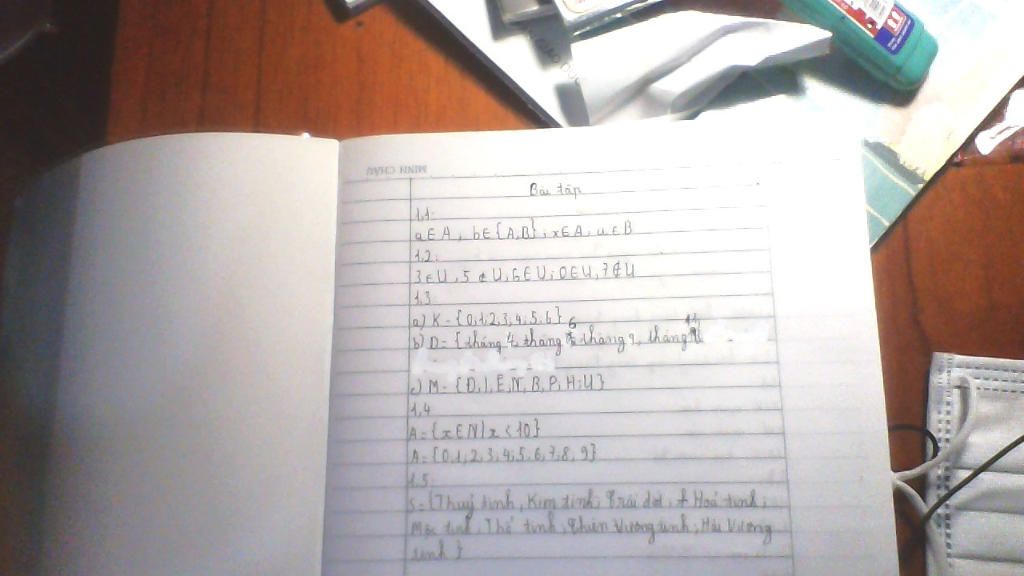 MINH CHÂU
Bài tập
1,1:
a∈A, b∈{A,B}; x∈A, u∈B
1,2:
3∈U, 5∉U; 6∈U; 0∈U, 7∉U
1,3
a) K={0;1;2;3;4;5;6}
b) D={tháng 4, tháng 6 tháng 9, tháng 11
c) M={Đ,I,Ê,N,B,P,H;U}
1,4
A={x∈N|x<10}
A={0;1;2;3;4;5;6;7;8;9}
1,5
S={Thuỷ tinh, Kim tinh; Trái đất, Hoả tinh;
Mộc tinh; Thổ tinh; Thiên Vương tinh; Hải Vương
tinh}